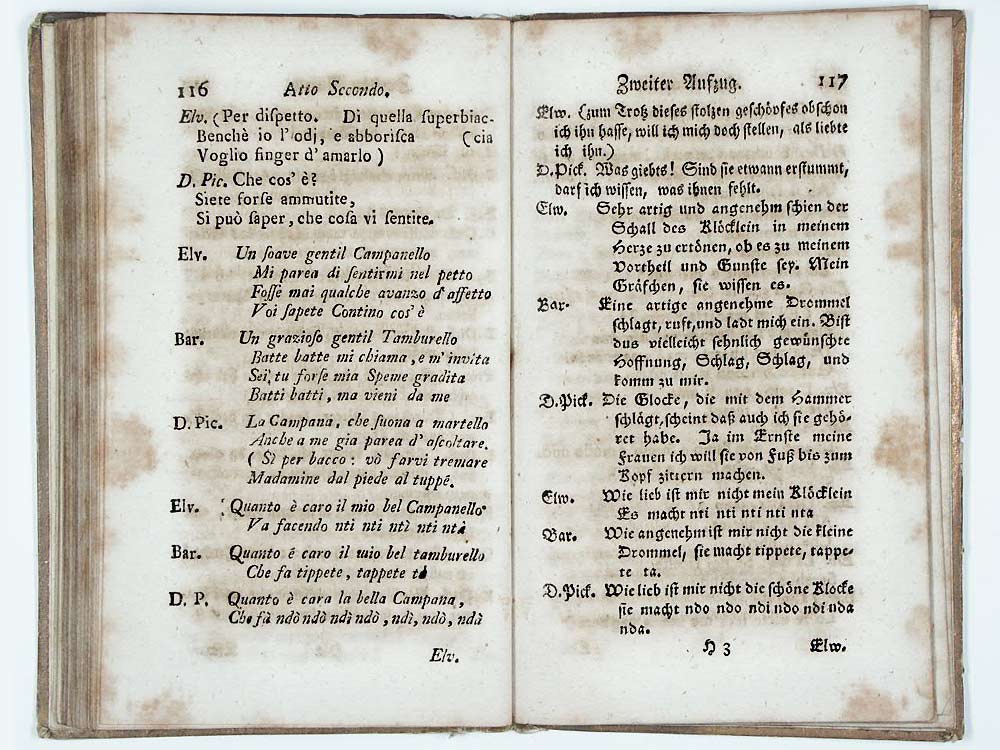 116 Atto Secondo.
Elv. (Per diſpetto. Di quella ſuperbiac-
Benchè io l'odj, e abboriſca (cia
Voglio finger d'amarlo )
D. Pic. Che cos'è?
Siete forſe ammutite,
Si può ſaper, che coſa vi ſentite.
Elv. Un ſoave gentil Campanello
Mi parea di ſentirmi nel petto
Foſſe mai qualche avanzo d'affetto
Voi ſapete Contino cos'è
Bar. Un grazioſo gentil Tamburello
Batte batte mi chiama, e m'invita
Sei, tu forſe mia Speme gradita
Batti batti, ma vieni da me
D. Pic. La Campana, che ſuona a martello
Anche a me gia parea d'aſcoltare.
( Sì per bacco: vò farvi tremare
Madamine dal piede al tuppè.
Elv. Quanto è caro il mio bel Campanello
Va facendo nti nti ntì nti ntà
Bar. Quanto è caro il mio bel tamburello
Che fa tippete, tappete tà
D. P. Quanto è cara la bella Campana,
Che fà ndò ndò ndì ndò, ndì, ndò, ndà
Elv.
Zweiter Aufzug. 117
Elw. (zum Trotz dieſes ſtolzen geſchöpfes obſchon
ich ihn haſſe, will ich mich doch ſtellen, als liebte
ich ihn.)
D.Pick. Was giebts! Sind ſie etwann erſtummt,
darf ich wiſſen, was ihnen fehlt.
Elw. Sehr artig und angenehm ſchien der
Schall des Klöcklein in meinem
Herze zu ertönen, ob es zu meinem
Vortheil und Gunſte ſey. Mein
Gräfchen, ſie wiſſen es.
Bar. Eine artige angenehme Drommel
ſchlagt, ruft, und ladt mich ein. Biſt
dus vielleicht ſehnlich gewünſchte
Hoffnung, Schlag, Schlag, und
komm zu mir.
D.Pick. Die Glocke, die mit dem Hammer
ſchlägt, ſcheint daß auch ich ſie gehö-
ret habe. Ja im Ernſte meine
Frauen ich will ſie von Fuß bis zum
Kopf zittern machen.
Elw. Wie lieb iſt mir nicht mein Klöcklein
Es macht nti nti nti nti nta
Bar. Wie angenehm iſt mir nicht die kleine
Drommel, ſie macht tippete, tappe-
te ta.
D.Pick. Wie lieb iſt mir nicht die ſchöne Klocke
ſie macht ndo ndo ndi ndo ndi nda
nda.
H 3 Elw.